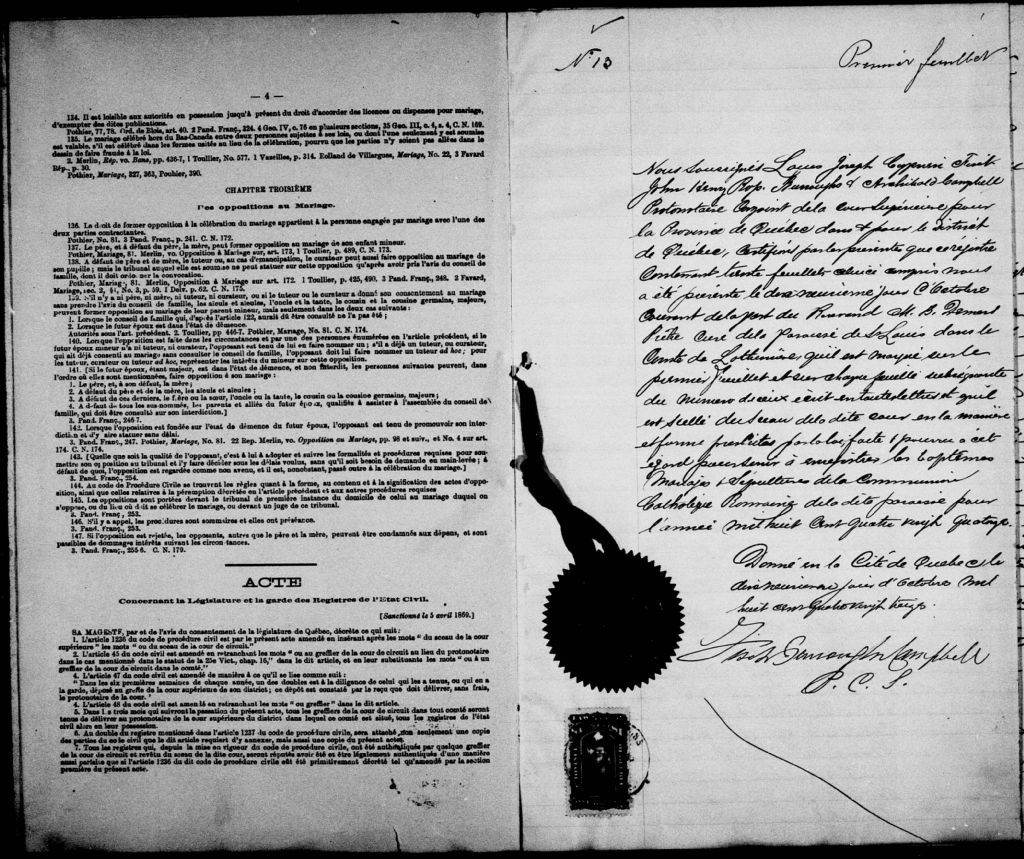 — 4 —
134. Il est loisible aux autorités en possession jusqu'à présent du droit d'accorder des licences ou dispenses pour mariage,
d'exempter des dites publications.
Pothier, 77, 78. Ord. de Blois, art. 40. 2 Pand. Franç., 224. 4 Geo. IV, c. 76 en plusieurs sections, 35 Geo. III, c. 4, s. 4, C. N. 169.
135. Le mariage célébré hors du Bas-Canada entre deux personnes sujettes à ses lois, ou dont l'une seulement y est soumise
est valable, s'il est célébré dans les formes usités au lieu de la célébration, pourvu que les parties n'y soient pas allées dans le
dessin de faire fraude à la loi.
2. Merlin, Rép. vo. Bans, pp. 436-7, 1 Toullier, No. 577. 1 Vaseilles, p. 314. Rolland de Villargues, Mariage, No. 22, 3 Favard
Rép., p. 30.
Pothier, Mariage, 327, 363, Pouhier, 390.
CHAPITRE TROISIÈME
Des oppositions au Mariage.
136. Le droit de former opposition à la célébration du mariage appartient à la personne engagée par mariage avec l'une des
deux parties contractantes.
Pothier, No. 81. 3 Pand. Franç., p. 241. C. N. 172.
137. Le père, et à défaut du père, la mère, peut former opposition au mariage de son enfant mineur.
Pothier, Mariage, 81. Merlin, vo. Opposition à Mariage sur, art. 173, 1 Toullier, p. 489, C. N. 173.
138. A défaut de père et de mère, le tuteur ou, au cas d'émancipation, le curateur peut aussi faire opposition au mariage de
son pupille; mais le tribunal auquel elle est soumise ne peut statuer sur cette opposition qu'après avoir pris l'avis du conseil de
famille, dont il doit ordonner la convocation.
Pothier, Mariage, 81. Merlin, Opposition à Mariage sur art. 172. 1 Toullier, p. 425, 490. 3 Pand. Franç., 248. 2 Favard,
Mariage, sec. 2, §1, No. 3, p. 59. 1 Delv. p. 62. C. N. 175.
139. S'il n'y a ni père, ni mère, ni tuteur, ni curateur, ou si le tuteur ou le curateur a donné son consentement au mariage
sans prendre l'avis du conseil de famille, les aïeuls et aïeules, l'oncle et la tante, le cousin et la cousine germains, majeurs,
peuvent former opposition au mariage de leur parent mineur, mais seulement dans les deux cas suivants:
1. Lorsque le conseil de famille qui, d'après l'article 122, aurait dû être consulté ne l'a pas été;
2. Lorsque le futur époux est dans l'état de démence.
Autorités sous l'art. précédent. 2. Toullier, pp 446-7. Pothier, Mariage, No. 81. C. N. 174.
140. Lorsque l'opposition est faite dans les circonstances et par une des personnes énumérées en l'article précédent, si le
futur époux mineur n'a ni tuteur, ni curateur, l'opposant est tenu de lui en faire nommer un; s'il a déjà un tuteur, ou curateur,
qui ait déjà consenti au mariage sans consulter le conseil de famille, l'opposant doit lui faire nommer un tuteur ad hoc; pour
les tuteur, curateur ou tuteur ad hoc, représenter les intérêts du mineur sur cette opposition.
141. [Si le futur époux, étant majeur, est dans l'état de démence, et non interdit, les personnes suivantes peuvent, dans
l'ordre où elles sont mentionnées, faire opposition à son mariage:
1. Le père, et, à son défaut, la mère;
2. A défaut du père et de la mère, les aïeuls et aïeules;
3. A défaut de ces derniers, le frère ou la sœur, l'oncle ou la tante, le cousin ou la cousine germains, majeurs;
4. A défaut de tous les sus-nommés, les parents et alliés du futur époux, qualifiés à assister à l'assemblée du conseil de
famille, qui doit être consulté sur son interdiction.]
3. Pand. Franç., 246 7.
142. Lorsque l'opposition est fondée sur l'état de démence du futur époux, l'opposant est tenu de promouvoir son inter-
diction et d'y faire statuer sans délai.
3. Pand. Franç., 247. Pothier, Mariage, No. 81. 22 Rep. Merlin, vo. Opposition au Mariage, pp. 98 et suiv., et No. 4 sur art.
174. C. N. 174.
143. [Quelle que soit la qualité de l'opposant, c'est à lui à adopter et suivre les formalités et procédures requises pour sou-
mettre son opposition au tribunal et l'y faire décider sous les délais voulus, sans qu'il soit besoin de demande en main-levée; à
défaut de quoi, l'opposition est regardée comme non avenue, et il est, nonobstant, passé outre à la célébration du mariage.]
3. Pand. Franç., 254.
144. Au code de Procédure Civile se trouvent les règles quant à la forme, au contenu et à la signification des actes d'oppo-
sition, ainsi que celles relatives à la péremption décrétée en l'article précédent et aux autres procédures requises
145. Les oppositions sont portées devant le tribunal de première instance du domicile de celui au mariage duquel on
s'oppose, ou du lieu où doit se célébrer le mariage, ou devant un juge de ce tribunal.
3. Pand. Franç., 253.
146. S'il y a appel, les procédures sont sommaires et elles ont préséance.
3. Pand. Franç., 253.
147. Si l'opposition est rejetée, les opposants, autres que le père et la mère, peuvent être condamnés aux dépens, et sont
passibles de dommages intérêts suivant les circonstances.
3. Pand. Franç., 255 6. C. N. 179.
ACTE
Concernant la Législature et la garde des Registres de l'Etat Civil.
[Sanctionné le 5 avril 1869.]
SA MAGESTE, par et de l'avis du consentement de la législature de Québec, décrète ce qui suit:
1. L'article 1236 du code de procédure civil est par le présent acte amendé en insérant après les mots "du sceau de la cour
supérieure" les mots "ou du sceau de la cour de circuit."
2. L'article 45 du code civil est amendé en retranchant les mots "ou au greffier de la cour de circuit au lieu du protonotaire
dans le cas mentionné dans le statut de la 25e Vict., chap. 16," dans le dit article, et en leur substituant les mots "ou à un
greffier de la cour de circuit dans le comté."
4. L'article 47 du code civil est amendé de manière à ce qu'il se lise comme suit:
"Dans les six premières semaines de chaque année, un des doubles est à la diligence de celui qui les a tenus, ou qui en a
la garde, déposé au greffe de la cour supérieure de son district; ce dépôt est constaté par le reçu que doit délivrer, sans frais,
le protonotaire de la cour."
4. L'article 48 du code civil est amendé en retranchant les mots "ou greffier" dans le dit article.
5. Dans les trois mois qui suivront la passation du présent acte, tous les greffiers de la cour de circuit dans tout comté seront
tenus de délivrer au protonotaire de la cour supérieure du district dans lequel ce comté est situé, tous les registres de l'état
civil alors en leur possession.
6. Au double du registre mentionné dans l'article 1237 du code de procédure civile, sera attaché, non seulement une copie
des parties du code civil que le dit article requiert d'y annexer, mais aussi une copie du présent acte.
7. Tous les registres qui, depuis la mise en vigueur du code de procédure civile, ont été authentiqués par quelque greffier
de la cour de circuit et revêtu du sceau de la dite cour, seront réputés avoir été et être légalement authentiqués d'une manière
aussi parfaite que si l'article 1236 du dit code de procédure civile eût été primitivement décrété tel qu'amendé par la section
première du présent acte.
No 13
Premier feuillet
Nous soussignés Louis Joseph Cyprien Fiset
John Henry Ross Burroughs & Archibald Campbell
Protonotaire Conjoint de la cour Supérieure pour
la Province de Québec dans & pour le district
de Québec, Certifions par les présentes que ce registre
Contenant trente feuillets celui ci compris nous
a été présenté le dix neuvieme jour d'Octobre
Courant de la part du Révérend M. B. Demers
Prêtre Curé de la Paroisse de St Louis dans le
Comté de Lotbinière, qu'il est marqué sur le
premier feuillet et sur chaque feuillet subséquents
du Numéro d'iceux écrit en toutes lettres et qu'il
est scellé du sceau de la dite cour en la manière
et forme prescrites par la loi faite & pourvue à cet
égard pour servir à enregistrer les baptêmes
Mariages & Sépultures de la Communion
Catholique Romaine de la dite paroisse pour
l'année mil huit Cent quatre vingt quatorze.
Donné en la Cité de Québec le
dix neuvieme jour d'Octobre Mil
huit cent quatre vingt treize.
Fiset Burroughs Campbell
P. C. S.